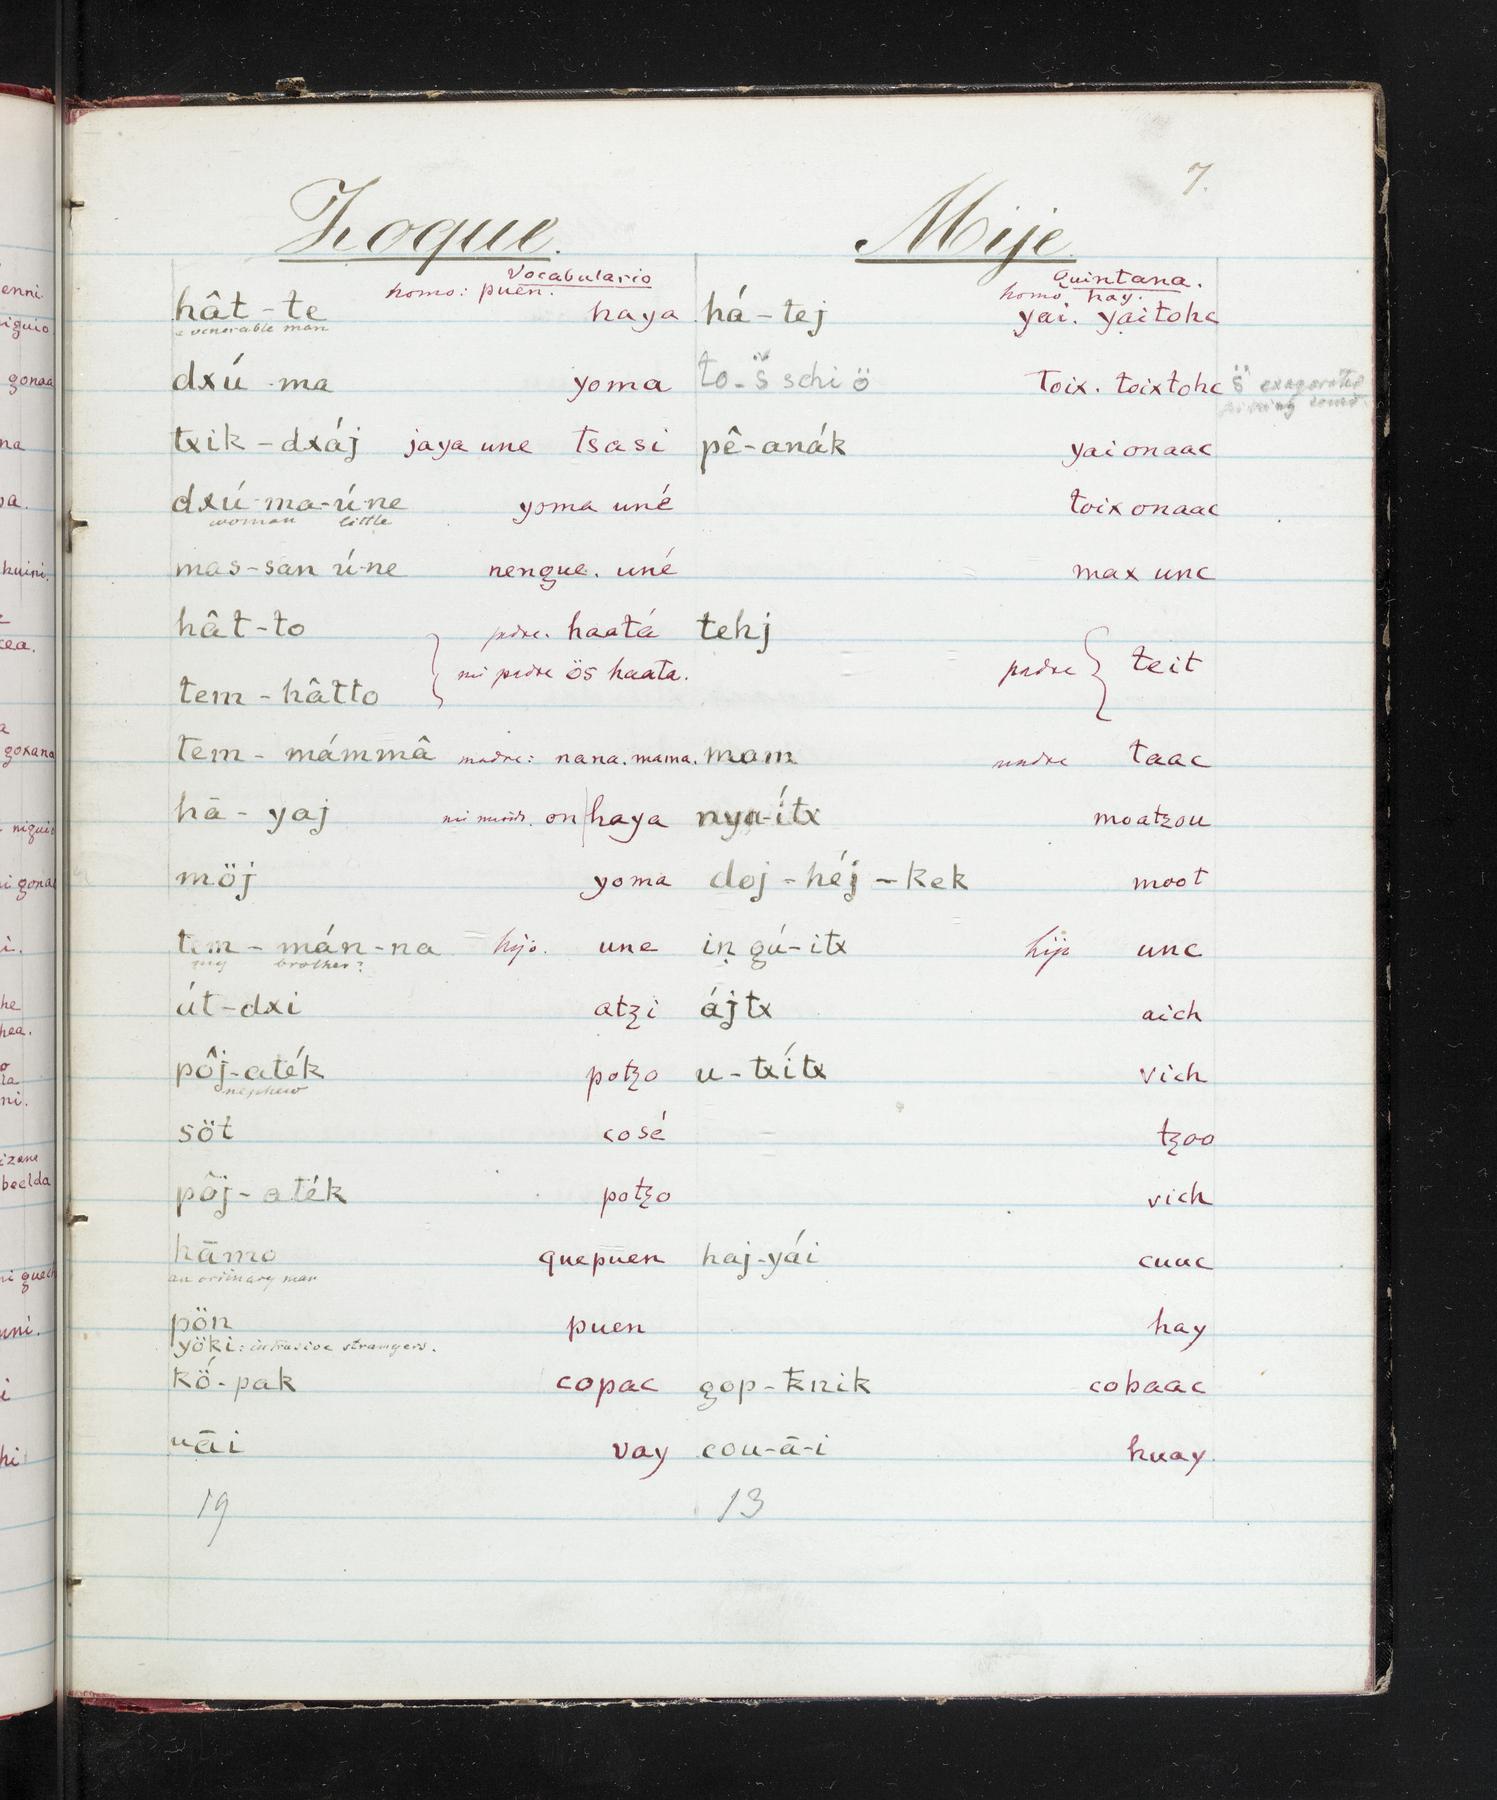 7.
Zoque. Mije
Vocabulario Quintana.
homo: puen. homo. hay.
hât-te haya há-tej yai. yaitohc
a venerable man
dxú-ma yoma to-s̈ schiö toix. toixtohc s̈ exagerated
txik-dxáj jaya une tsasi pê-anák yaionaac
dxú-ma-ú-ne yoma uné toixonaac
woman little
mas-san ú-ne nengue. uné max unc
hât-to pdre. haatá tehj
mi pedre ös haata. padre teit
tem-hâtto
tem-mámmâ madre: nana. mama. mam madre taac
hā-yaj on haya nya-ítx moatzou
möj yoma doj-héj-kek moot
tem-mán-na hijo. une in gú-itx hijo unc
my brother?
út-dxi atzi ájtx aich
pôj-aték potzo u-txítx vich
nephew
söt cosé tzoo
pôj-aték potzo vich
hāmo quepuen haj-yái cuuc
an oriinary man
pön puen hay
yöki: intrusive strangers.
kö́-pak copac gop-knik cobaac
uāi vay cou-ā-i huay.
19 13
enni.
niguio
gonaa
na
oa.
kuini.
cea.
a
goxana
niguio
i gonaa
i.
he
hea.
o
la
ni.
izane
beelda
ni guech
nni.
i
hi